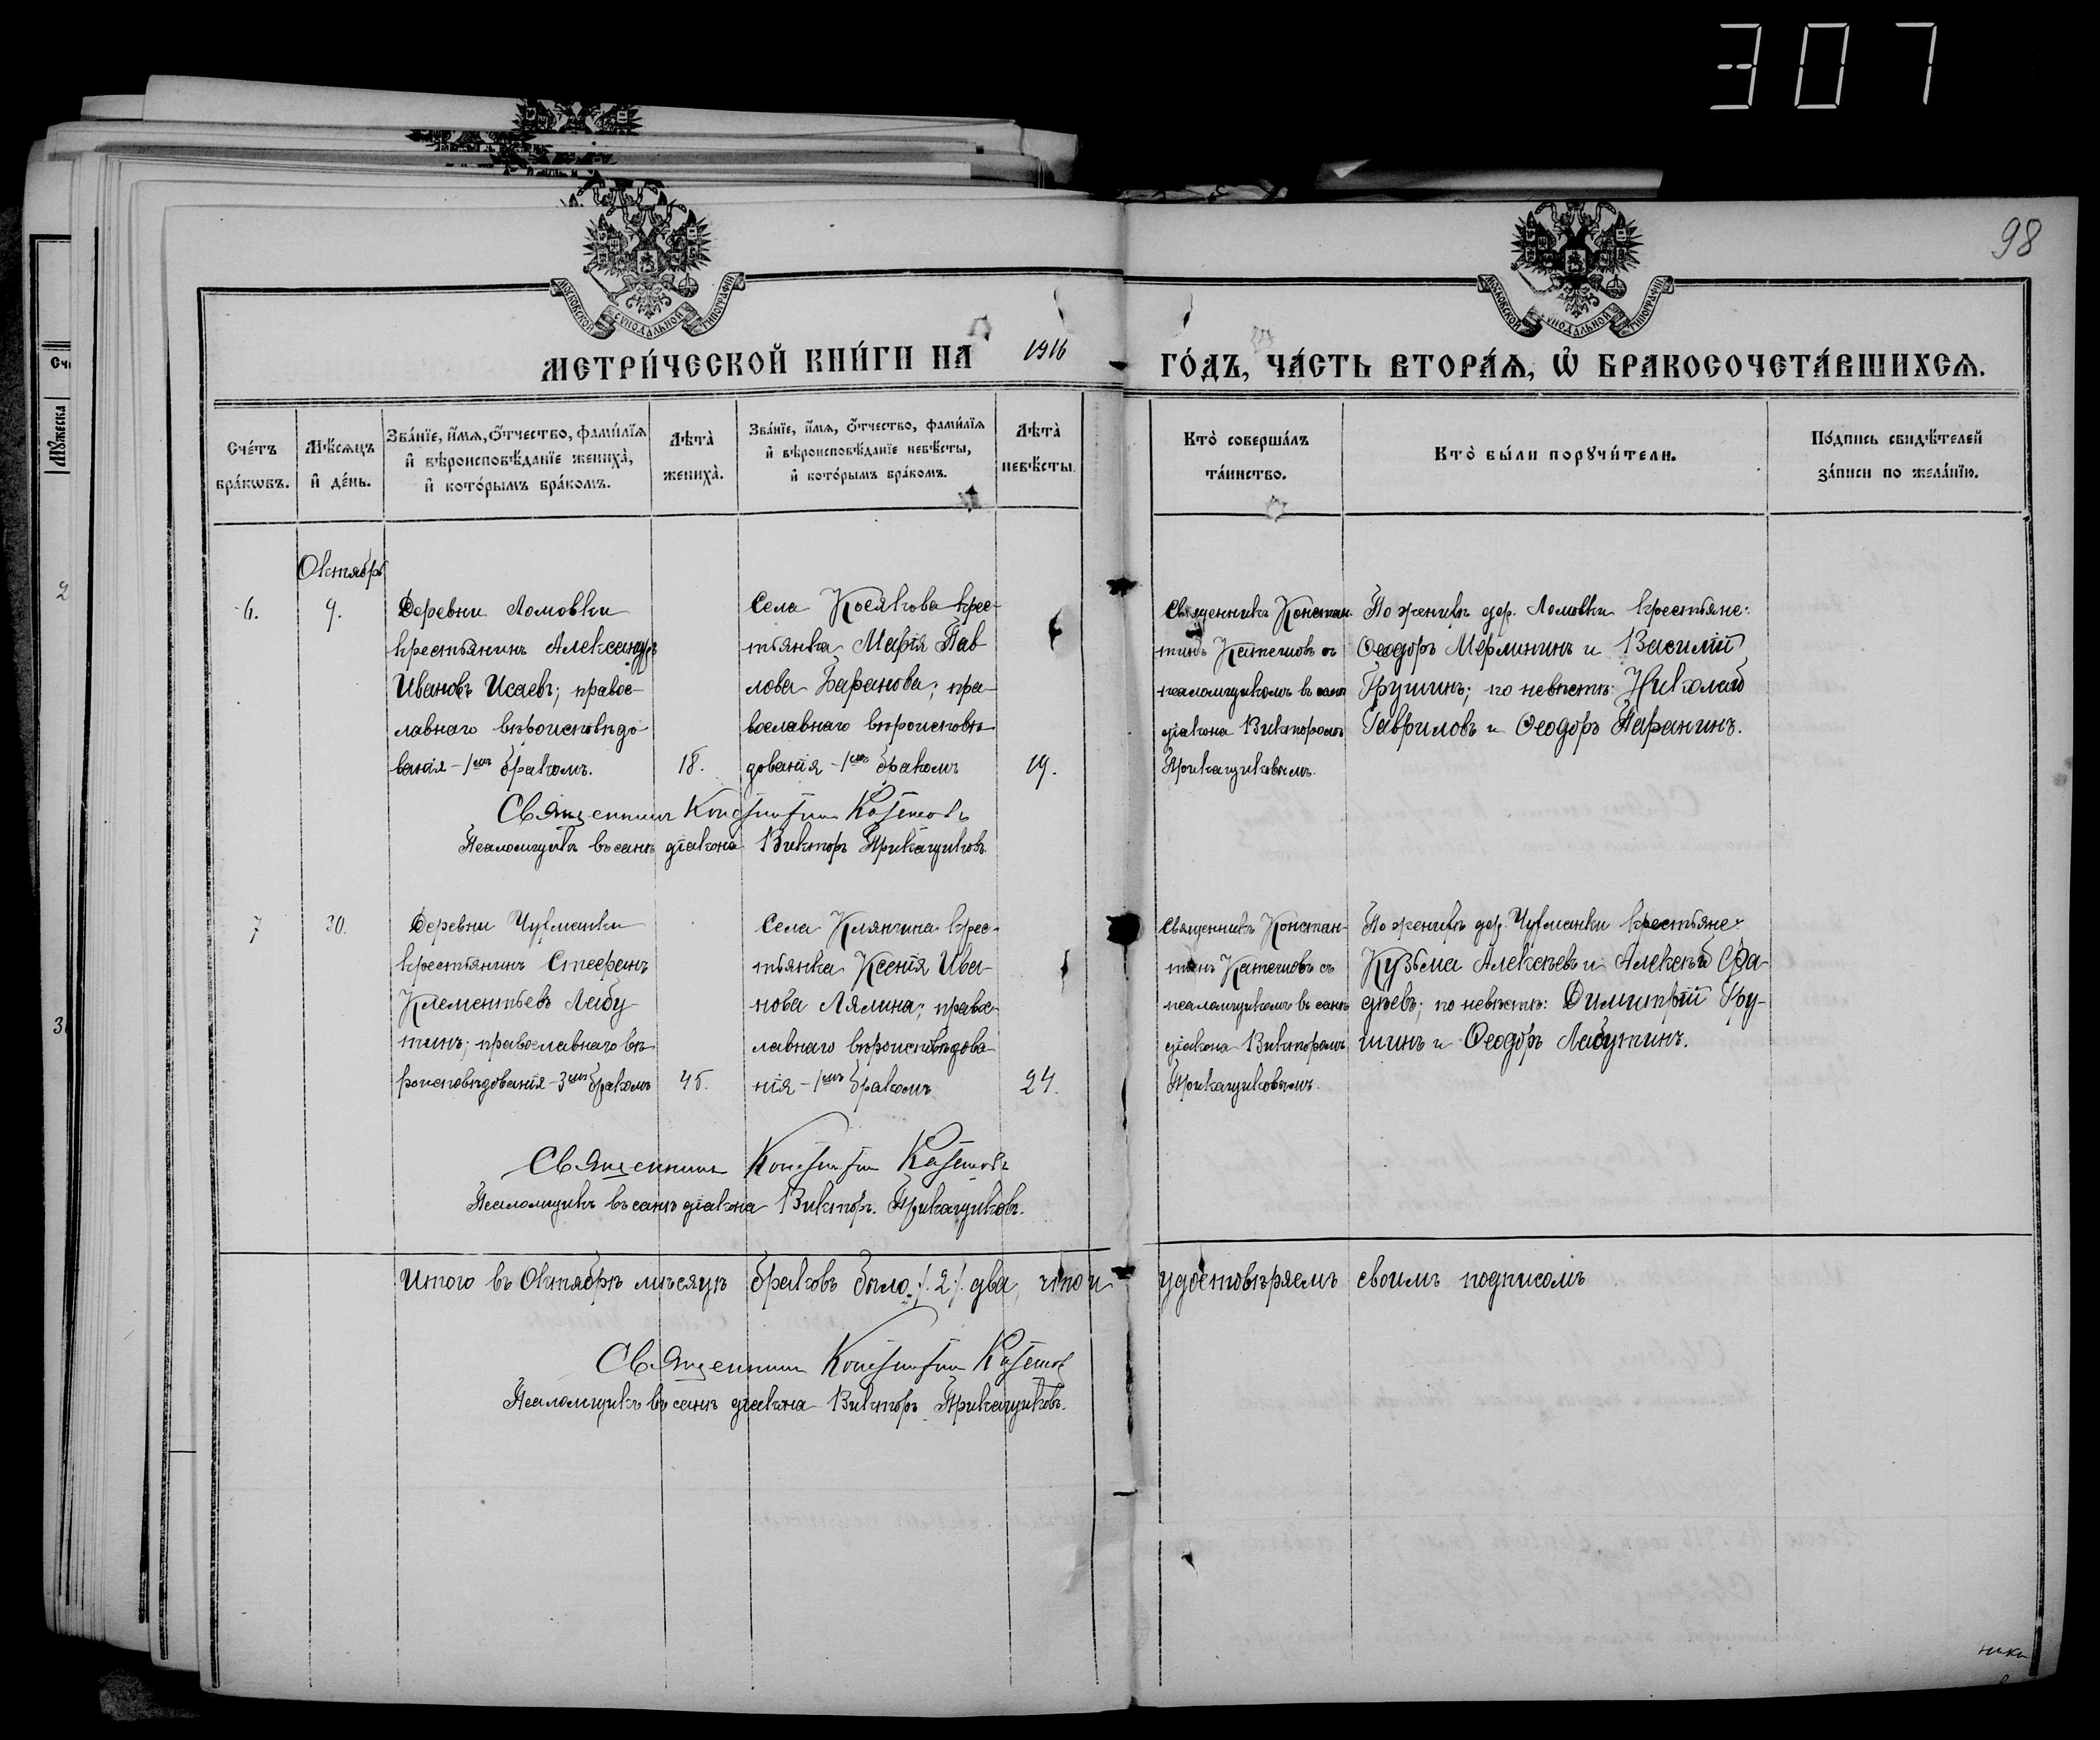 307
98
МОСКОВСКОЙ СѴНОДАЛЬНОЙ ТИПОГРАФІИ
МОСКОВСКОЙ СѴНОДАЛЬНОЙ ТИПОГРАФІИ
МЕТРИ́ЧЕСКОЙ КНИ́ГИ НА 1916 ГО́ДЪ, ЧА́СТЬ ВТОРА́Ѧ, Ѡ҆ БРАКОСОЧЕТА́ВШИХСѦ.
Сче́тъ
бра́кѡвъ.
Мѣ́сѧцъ
и҆ де́нь.
Зва́нїе, и҆́мѧ, ѻ҆́тчество, фами́лїѧ
и҆ вѣроисповѣ́данїе жениха̀,
и҆ кото́рымъ бра́комъ.
Лѣта̀
жениха̀.
Зва́нїе, и҆́мѧ, ѻ҆́тчество, фами́лїѧ
и҆ вѣроисповѣ́данїе невѣ́сты,
и҆ кото́рымъ бра́комъ.
Лѣта̀
невѣ́сты.
Кто̀ соверша́лъ
та́инство.
Кто̀ бы́ли порꙋчи́тели.
По́дпись свидѣ́телей
за́писи по жела́нїю.
Октябрь
6.
9.
Деревни Ломовки
крестьянинъ Александръ
Ивановъ Исаевъ; правос-
лавнаго вѣроисповѣдо
ванія – 1ымъ бракомъ.
18.
Села Косякова крес-
тьянка Марія Пав
лова Баранова; пра-
вославнаго вѣроисповѣ
дованія – 1ымъ бракомъ
19.
Священникъ Констан-
тинъ Катетовъ съ
псаломщикомъ въ санѣ
діакона Викторомъ
Прикащиковымъ.
По женихѣ дер. Ломовки крестьяне:
Ѳеодоръ Мерлининъ и Василій
Грушинъ; по невѣстѣ: Николай
Гавриловъ и Ѳеодоръ Паранинъ.
Священникъ Константин Катетовъ
Псаломщикъ въ санѣ діакона Викторъ Прикащиковъ.
7
30.
Деревни Чуфманки
крестьянинъ Стефанъ
Клементьевъ Лабу
тинъ; православнаго вѣ
роисповѣдованія – 3имъ бракомъ
45.
Села Клянчина крес-
тьянка Ксенія Ива-
нова Лялина; правос-
лавнаго вѣроисповѣдова
нія – 1ымъ бракомъ
24.
Священникъ Констан-
тинъ Катетовъ съ
псаломщикомъ въ санѣ
діакона Викторомъ
Прикащиковымъ.
По женихѣ дер. Чуфманки крестьяне:
Кузьма Алексѣевъ и Алексѣй Фа-
дѣевъ; по невѣстѣ: Димитрій Гру-
шинъ и Ѳеодоръ Лабутинъ.
Священникъ Константин Катетовъ
Псаломщикъ въ санѣ діакона Викторъ. Прикащиковъ.
Итого въ Октябрѣ мѣсяцѣ браковъ было ./. 2 ./. два, что и удостовѣряемъ своимъ подписомъ
Священникъ Константин Катетов
Псаломщикъ въ санѣ діакона Викторъ Прикащиковъ.